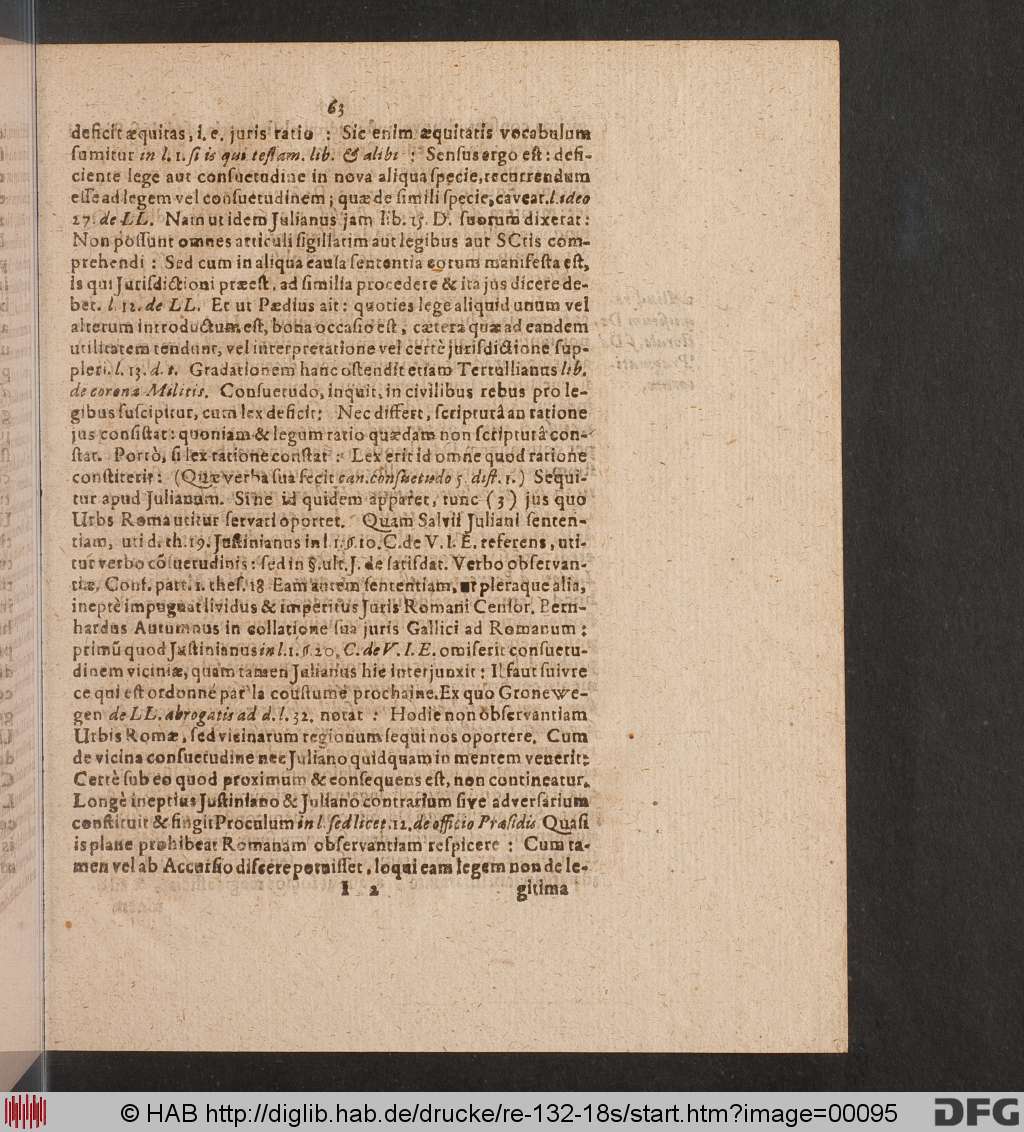 63
deficit æquitas, i. e. juris ratio : Sic enim æquitatis vocabulum
sumitur in l. 1. si is qui testam. lib. & alibi : Sensus ergo est: defi-
ciente lege aut consuetudine in nova aliqua specie, recurrendum
esse ad legem vel consuetudinem; quæ de simili specie, caveat. l. ideo
27. de LL. Nam ut idem Julianus jam lib. 15. D. suorum dixerat:
Non possunt omnes articuli sigillatim aut legibus aut SCtis com-
prehendi : Sed cum in aliqua causa sententia eorum manifesta est,
is qui Jurisdictioni præest, ad similia procedere & ita jus dicere de-
bet. l. 12. de LL. Et ut Pædius ait: quoties lege aliquid unum vel
alterum introductum est, bona occasio est, cætera quæ ad eandem
utilitatem tendunt, vel interpretatione vel certè jurisdictione sup-
pleri. l. 13. d. t. Gradationem hanc ostendit etiam Tertullianus lib.
de corona Militis. Consuetudo, inquit, in civilibus rebus pro le-
gibus suscipitur, cum lex deficit: Nec differt, scripturâ an ratione
jus consistat: quoniam & legum ratio quædam non scripturâ con-
stat. Porrò, si lex ratione constat : Lex erit id omne quod ratione
constiterit: (Quæ verba sua fecit can. consuetudo 5. dist. 1.) Sequi-
tur apud Julianum. Si ne id quidem apparet, tunc (3) jus quo
Urbs Roma utitur servari oportet. Quam Salvii Juliani senten-
tiam, uti d. th. 19. Justinianus in l. 1. §. 10. C. de V. I. E. referens, uti-
tur verbo cõsuetudinis: sed in §. ult. J. de satisdat. Verbo observan-
tiæ, Conf. part. 1. thes. 18 Eam autem sententiam, ut pleraque alia,
ineptè impugnat lividus & imperitus Juris Romani Censor, Bern-
hardus Autumnus in collatione sua juris Gallici ad Romanum:
primũ quod Justinianus in l. 1. §. 20. C. de V. I. E. omiserit consuetu-
dinem viciniæ, quam tamen Julianus hic interjunxit: Il faut suivre
ce qui est ordonné par la coustume prochaine. Ex quo Gronewe-
gen de LL. abrogatis ad d. l. 32. notat : Hodie non observantiam
Urbis Romæ, sed vicinarum regionum sequi nos oportere. Cum
de vicina consuetudine nec Juliano quidquam in mentem venerit:
Certè sub eo quod proximum & consequens est, non contineatur.
Longè ineptius Justiniano & Juliano contrarium sive adversarium
constituit & fingit Proculum in l. sed licet. 12. de officio Præsidis Quasi
is plane prohibeat Romanam observantiam respicere : Cum ta-
men vel ab Accursio discere potuisset, loqui eam legem non de le-
I 2 gitima
© HAB http://diglib.hab.de/drucke/re-132-18s/start.htm?image=00095 DFG